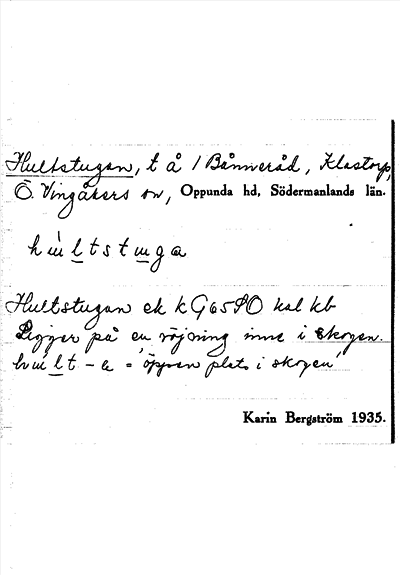 Hultstugan, t å 1 Bänneråd, Klastorp,
Ö. Vingåkers sn, Oppunda hd, Södermanlands län.
Hultstugan ek kG65SO kal kb
Ligger på en röjning inne i skogen.
- a = 'öppen plats i skogen'
Karin Bergström 1935.